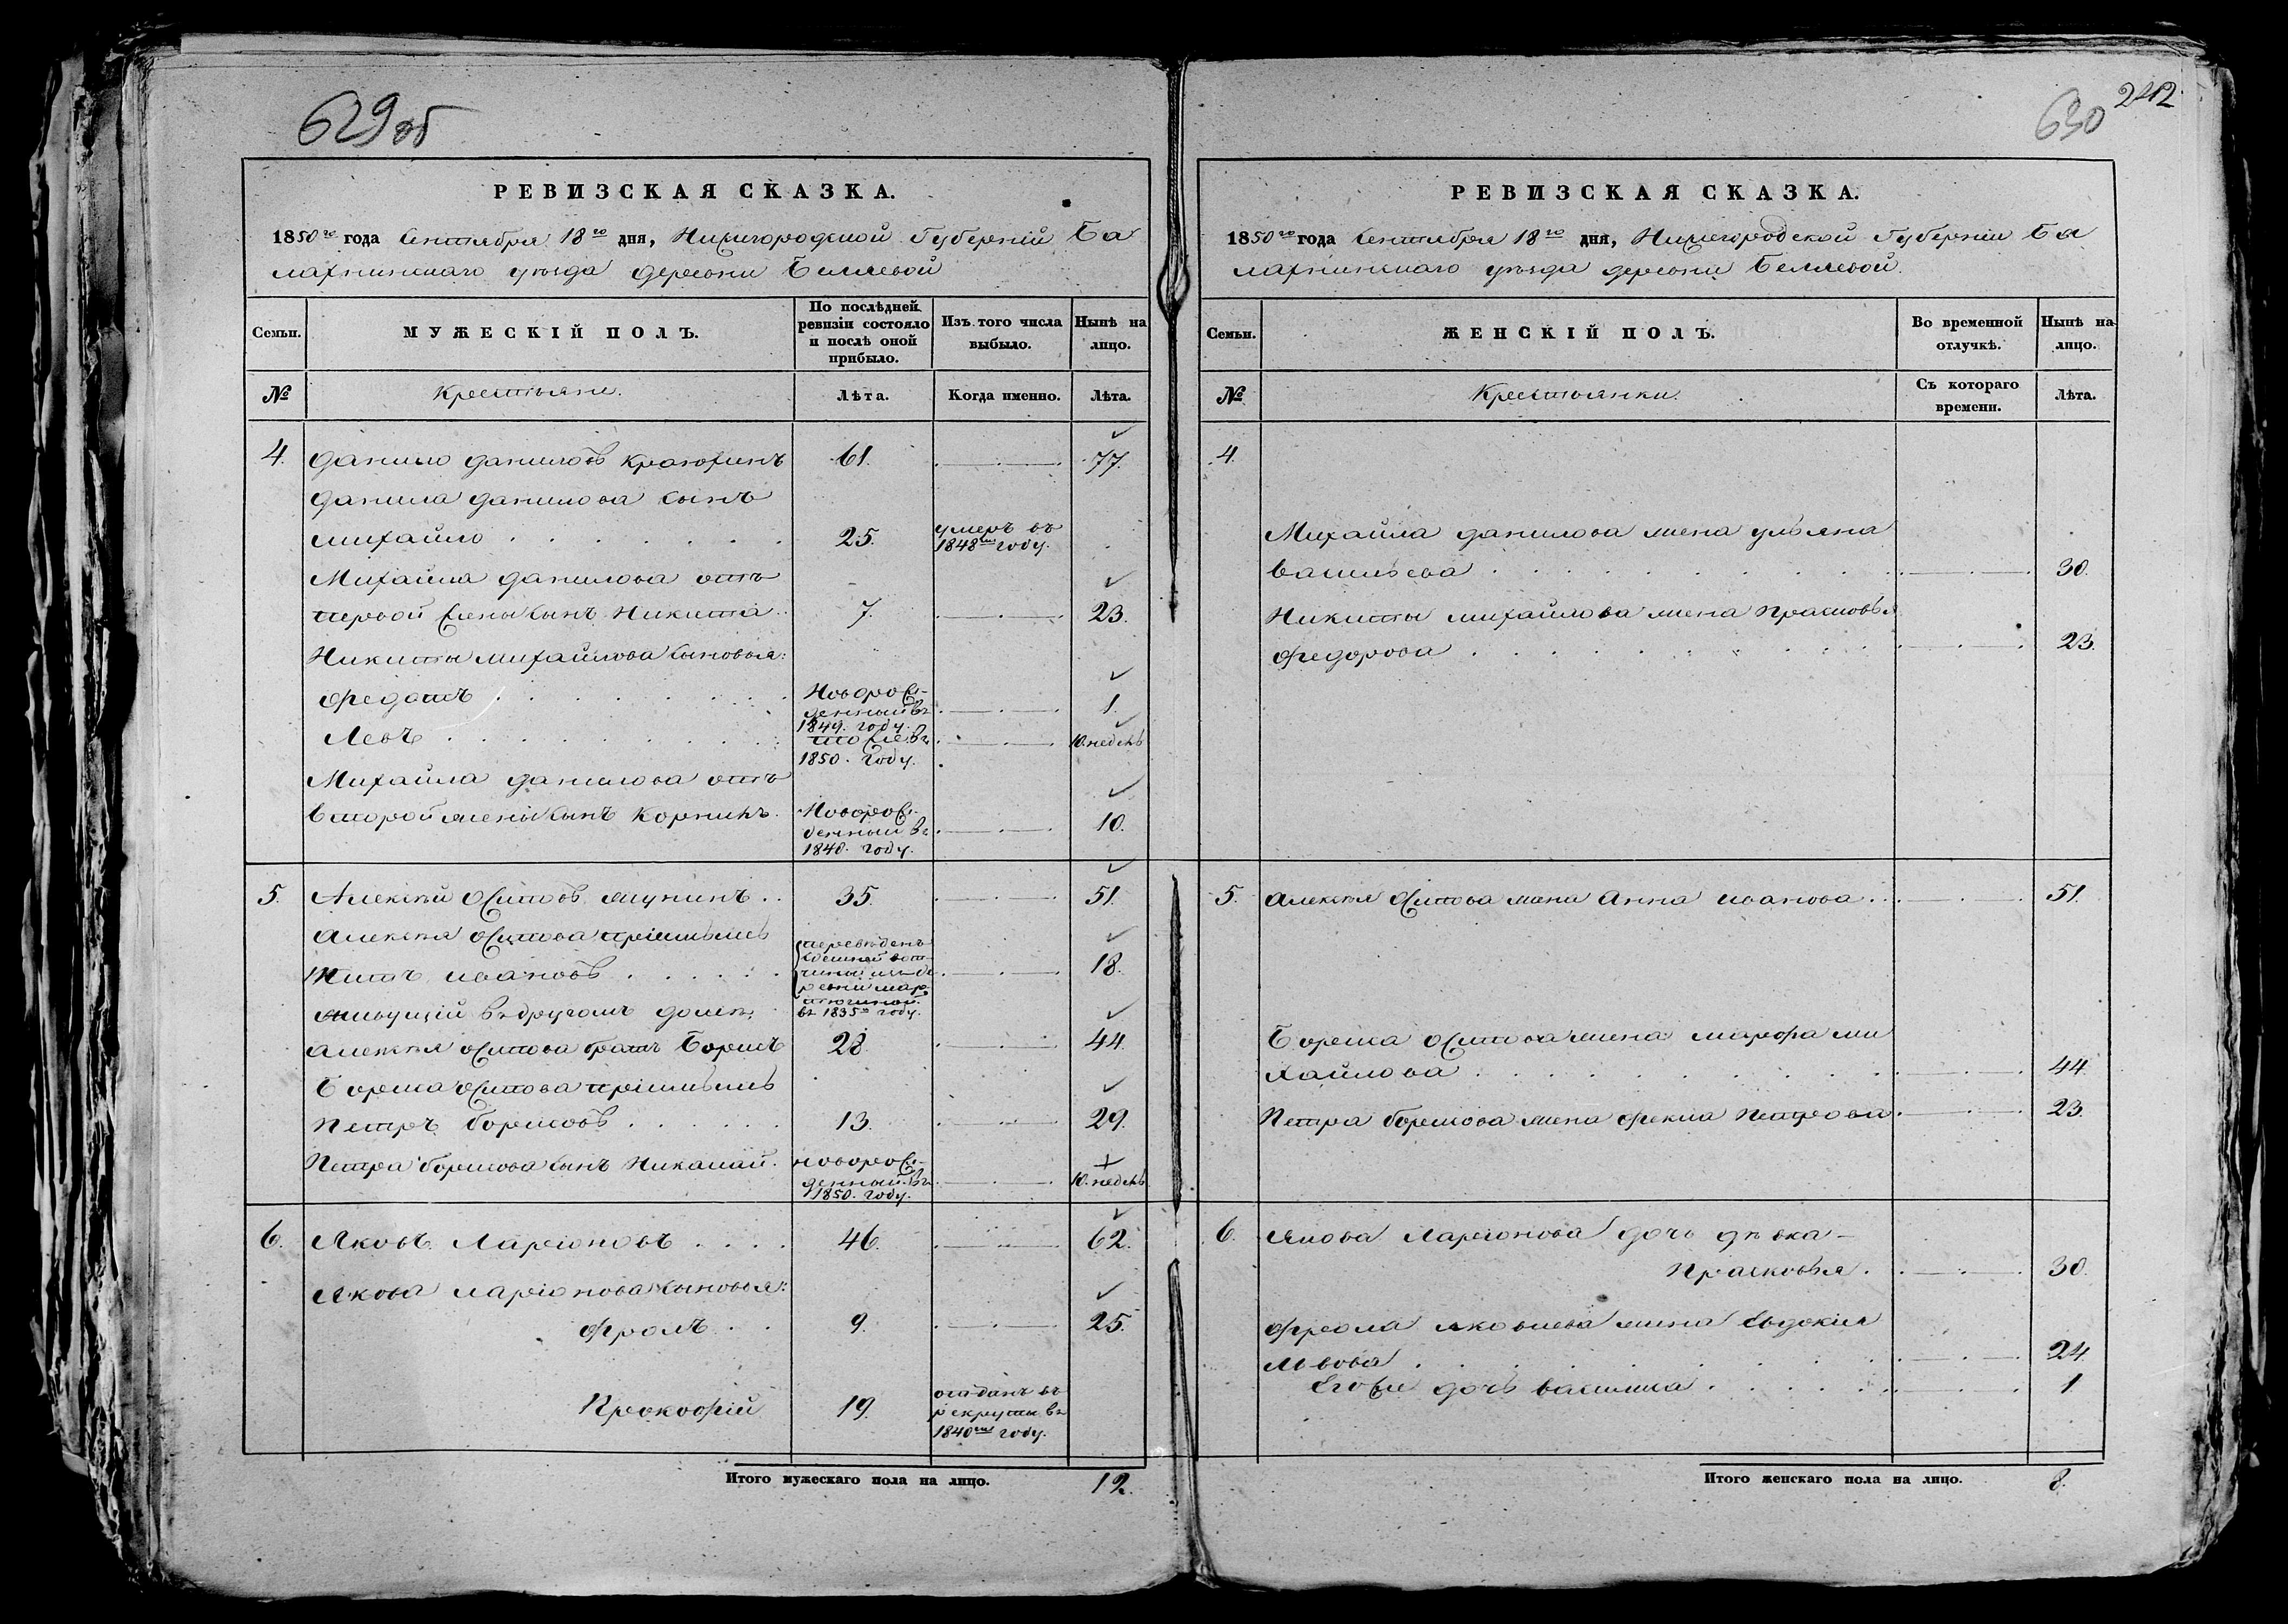 629 об
РЕВИЗСКАЯ СКАЗКА.
1850го года Сентября 18го дня, Нижегородской Губерніи Ба
лахнинскаго уѣзда деревни Беляевой
Семьи.
МУЖЕСКІЙ ПОЛЪ.
По послѣдней ревизіи состояло и послѣ оной прибыло.
Изъ того числа выбыло.
Нынѣ на лицо.
№
Крестьяне.
Лѣта.
Когда именно.
Лѣта.
4. Данило Даниловъ 61. 77.
Данила Данилова сынъ
Михайло 25. умеръ въ 1848мъ году.
Михайла Данилова отъ
первой жены сынъ Никита 7. 23.
Никиты Михайлова сыновья:
Федотъ Новорожденный въ 1849. году. 1.
Левъ тоже въ 1850. году. 10. недель
Михайла Данилова отъ
второй жены сынъ Корнилъ. Новорожденный въ 1840. году. 10.
5. Алексѣй Осиповъ 35. 51.
Алексѣя Осипова пріемышъ
Титъ Ивановъ переведенъ въ 1835м году. 18.
живущій въ другомъ доме,
Алексѣя Осипова братъ Борисъ 28. 44.
Бориса Осипова пріемышъ
Петръ Борисовъ 13. 29.
Петра Борисова сынъ Николай. новорожденный въ 1850. году. 10. недель
6. Яковъ Ларіоновъ 46. 62.
Якова Ларіонова сыновья:
Фролъ 9. 25.
Прокофій 19. отданъ въ рекруты въ 1840мъ году.
Итого мужескаго пола на лицо. 12.
630 242
РЕВИЗСКАЯ СКАЗКА.
1850го года Сентября 18го дня, Нижегородской Губерніи Ба
лахнинскаго уѣзда деревни Беляевой.
Семьи.
ЖЕНСКІЙ ПОЛЪ.
Во временной отлучкѣ.
Нынѣ на лицо.
№
Крестьянки.
Съ котораго времени.
Лѣта.
4.
Михайла Данилова жена Ульяна
Васильева 30.
Никиты Михайлова жена Прасковья
Федорова 23.
5. Алексѣя Осипова жена Анна Иванова 51.
Бориса Осипова жена Марфа Ми
хайлова 44.
Петра Борисова жена Фекла Петрова 23.
6. Якова Ларіонова дочь дѣвка
Прасковья. 30.
Фрола Яковлева жена Евдокія
Львова 24.
Егоже дочь Василиса 1.
Итого женскаго пола на лицо. 8.